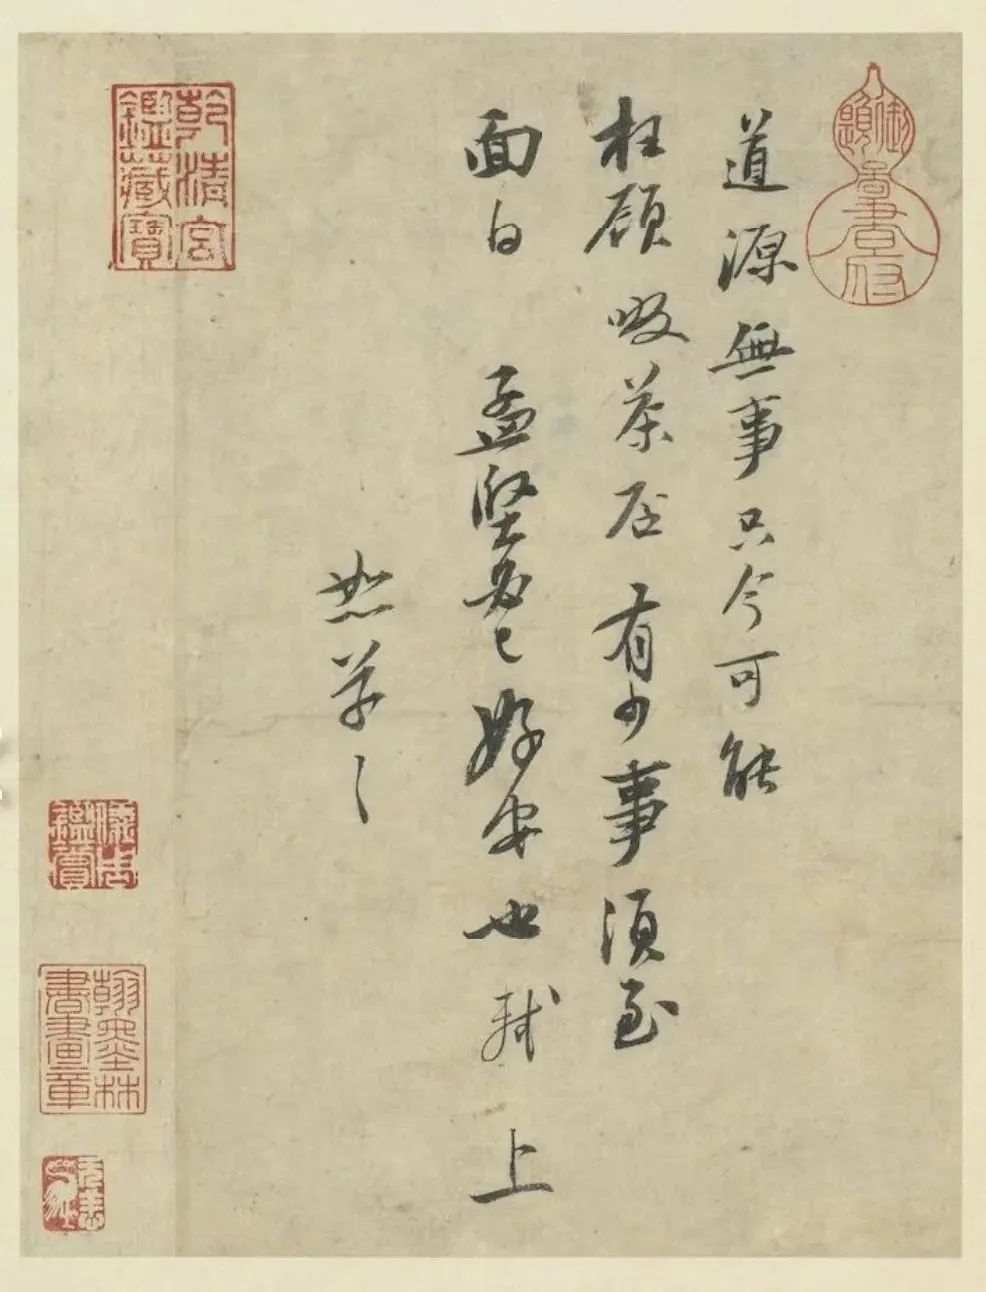 道源無事只今可能
枉顧啜茶否有少事須至
面白孟堅必已好安也軾上
恕草〻
乾清宮鑑藏寶
儀周鑑賞
翰墨林書畫章